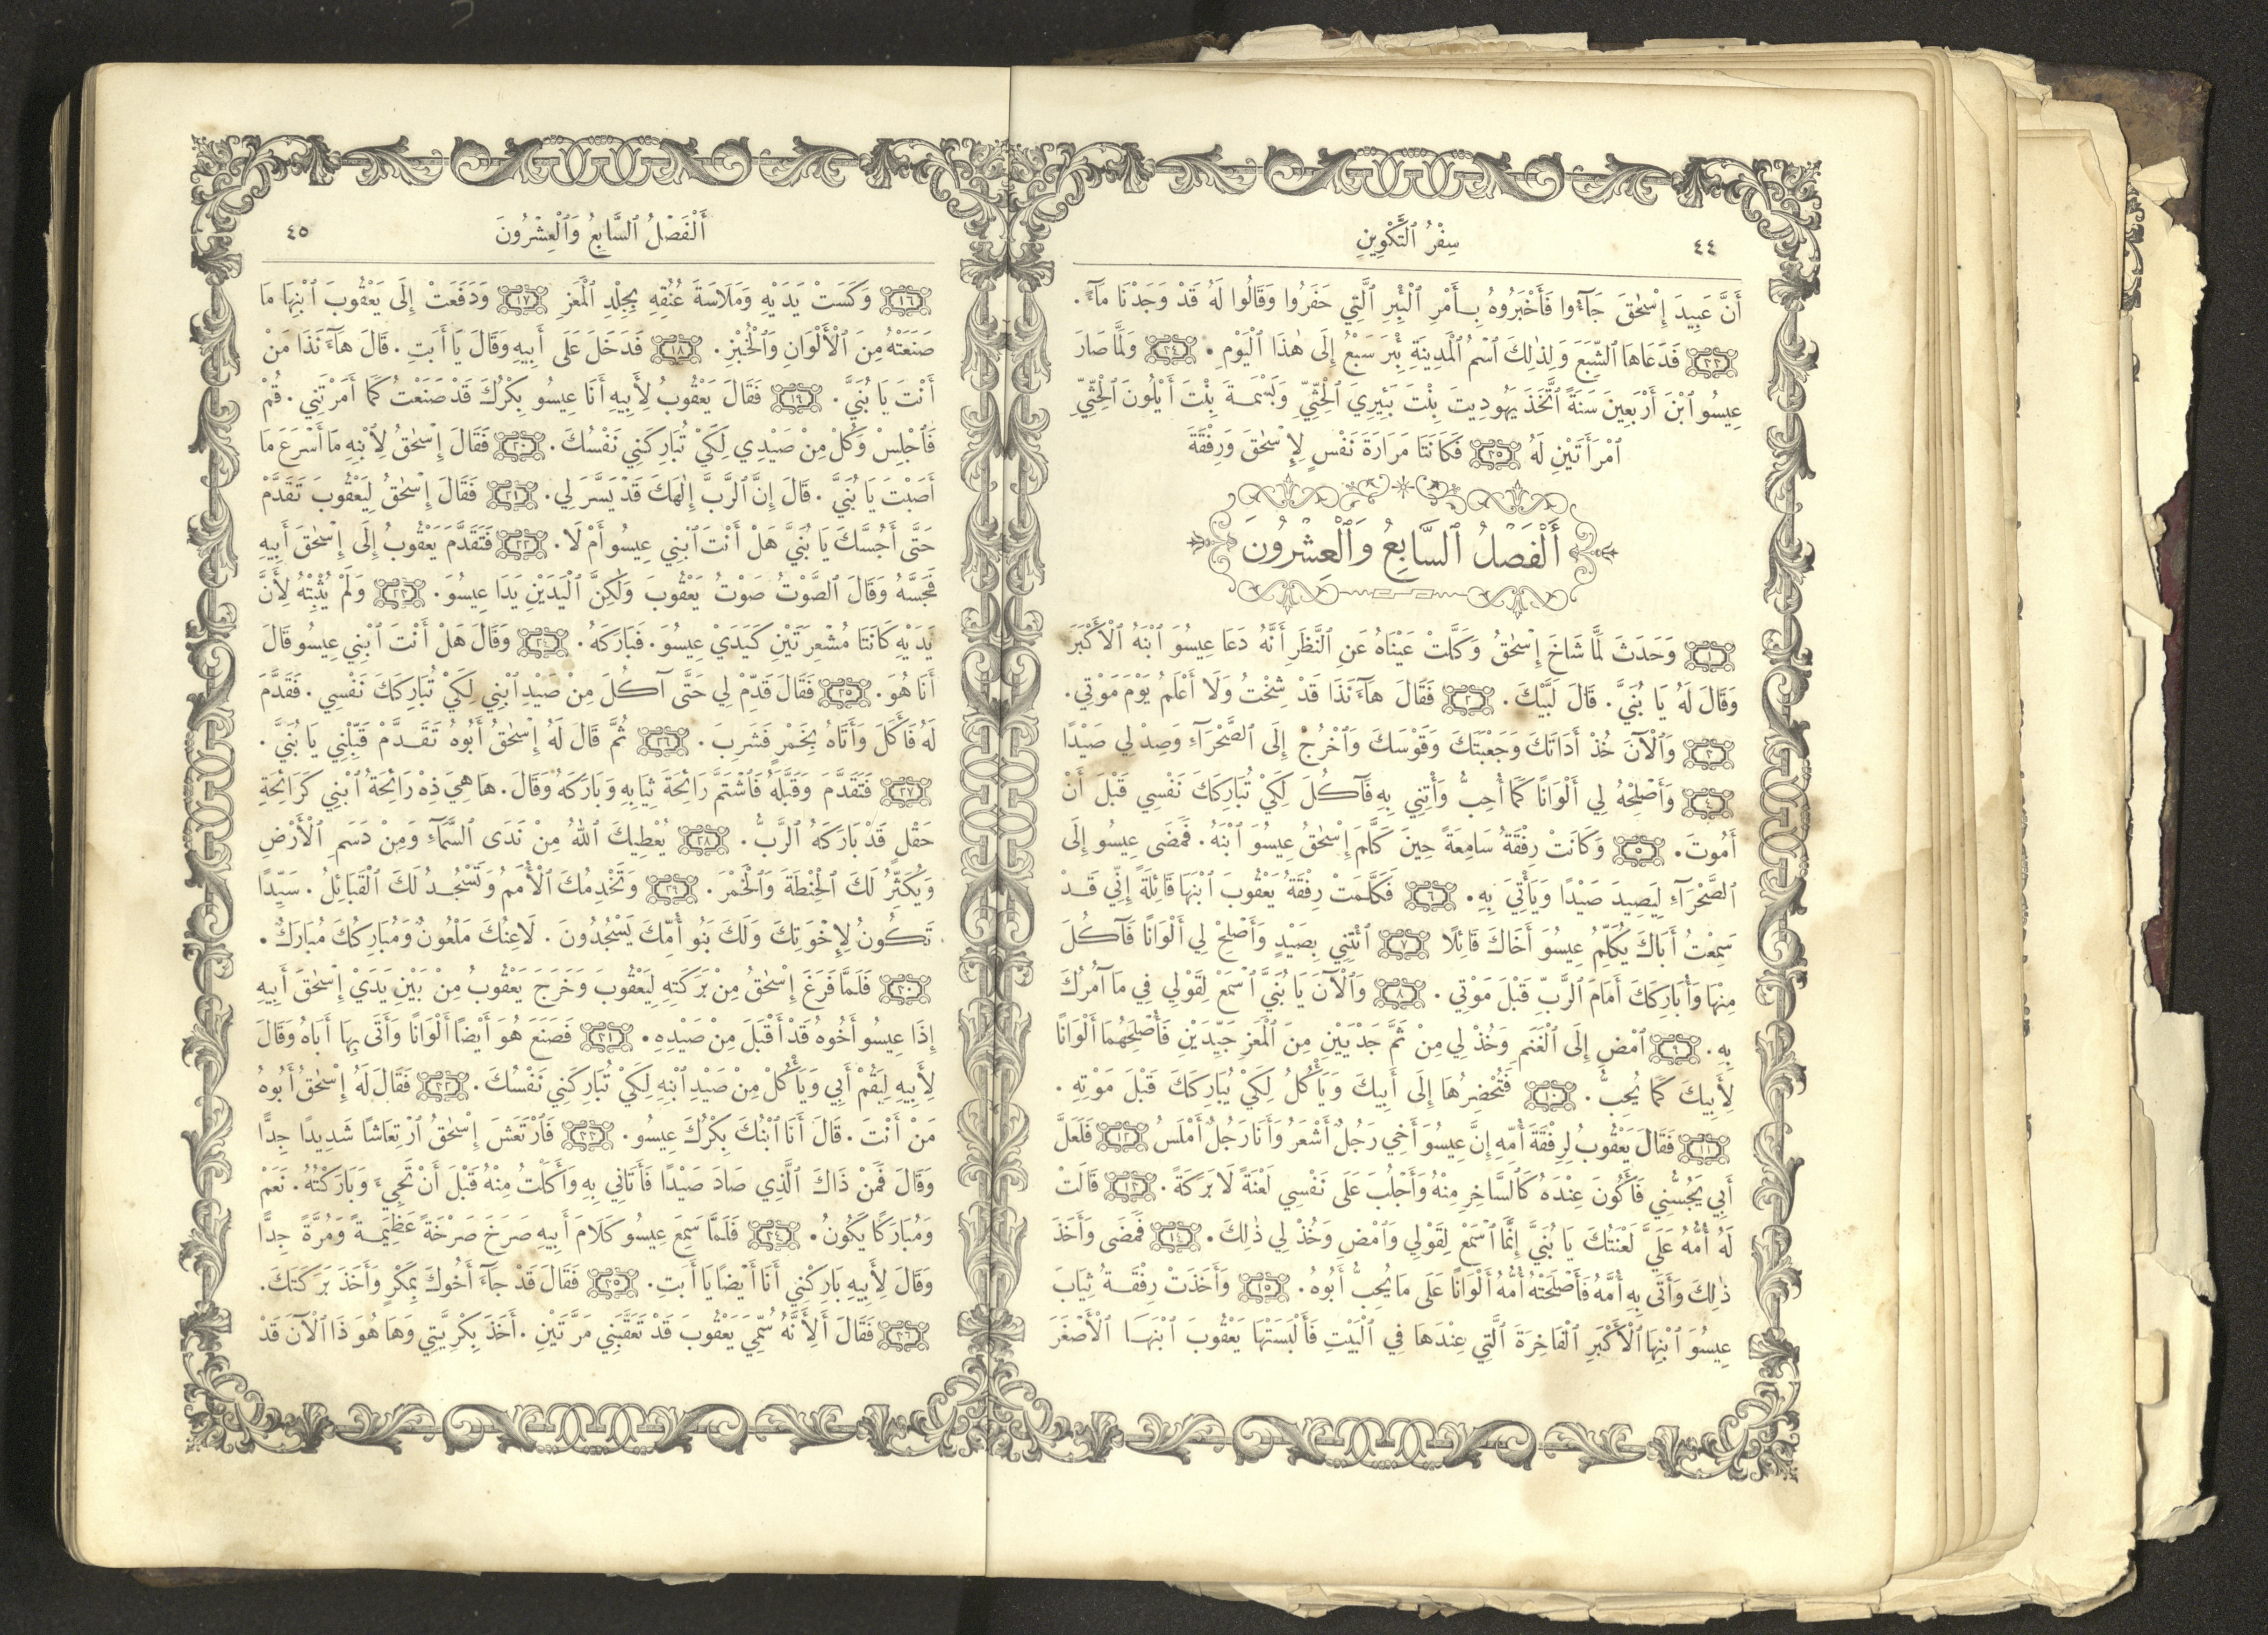 ٤٤
سِفْرُ ٱلتَّكْوِينِ
أَنَّ عَبِيدَ إِسْحٰقَ جَآءُوا فَأَخْبَرُوهُ بِأَمْرِ ٱلْبِئْرِ ٱلَّتِي حَفَرُوا وَقَالُوا لَهُ قَدْ وَجَدْنَا مَآءً.
٣٣ فَدَعَاهَا ٱلشِّبَعَ وَلِذٰلِكَ ٱسْمُ ٱلْمَدِينَةِ بِئْرَ سَبْعُ إِلَى هٰذَا ٱلْيَوْمِ. ٣٤ وَلَمَّا صَارَ
عِيسُو ٱبْنَ أَرْبَعِينَ سَنَةً ٱتَّخَذَ يَهُودِيتَ بِنْتَ بَئِيرِيَ ٱلْحِثِّيِّ وَبَسْمَةَ بِنْتَ أَيْلُونَ ٱلْحِثِّيِّ
ٱمْرَأَتَيْنِ لَهُ ٣٥ فَكَانَتَا مَرَارَةَ نَفْسٍ لِإِسْحٰقَ وَرِفْقَةَ
أَلْفَصْلُ ٱلسَّابِعُ وَٱلْعِشْرُونَ
١ وَحَدَثَ لَمَّا شَاخَ إِسْحٰقُ وَكَلَّتْ عَيْنَاهُ عَنِ ٱلنَّظَرِ أَنَّهُ دَعَا عِيسُوَ ٱبْنَهُ ٱلْأَكْبَرَ
وَقَالَ لَهُ يَا بُنَيَّ. قَالَ لَبَّيْكَ. ٢ فَقَالَ هَآءَنَذَا قَدْ شِخْتُ وَلَا أَعْلَمُ يَوْمَ مَوْتِي.
٣ وَٱلْآنَ خُذْ أَدَاتَكَ وَجَعْبَتَكَ وَقَوْسَكَ وَٱخْرُجْ إِلَى ٱلصَّحْرَآءِ وَصِدْ لِي صَيْدًا
٤ وَأَصْلِحْهُ لِي أَلْوَانًا كَمَا أُحِبُّ وَأْتِنِي بِهِ فَآكُلَ لِكَيْ تُبَارِكَكَ نَفْسِي قَبْلَ أَنْ
أَمُوتَ. ٥ وَكَانَتْ رِفْقَةُ سَامِعَةً حِينَ كَلَّمَ إِسْحٰقُ عِيسُوَ ٱبْنَهُ. فَمَضَى عِيسُو إِلَى
ٱلصَّحْرَآءِ لِيَصِيدَ صَيْدًا وَيَأْتِيَ بِهِ. ٦ فَكَلَّمَتْ رِفْقَةُ يَعْقُوبَ ٱبْنَهَا قَائِلَةً إِنِّي قَدْ
سَمِعْتُ أَبَاكَ يُكَلِّمُ عِيسُوَ أَخَاكَ قَائِلًا ٧ ٱئْتِنِي بِصَيْدٍ وَأَصْلِحْ لِي أَلْوَانًا فَآكُلَ
مِنْهَا وَأُبَارِكَكَ أَمَامَ ٱلرَّبِّ قَبْلَ مَوْتِي. ٨ وَٱلْآنَ يَا بُنَيَّ ٱسْمَعْ لِقَوْلِي فِي مَا آمُرُكَ
بِهِ. ٩ ٱمْضِ إِلَى ٱلْغَنَمِ وَخُذْ لِي مِنْ ثَمَّ جَدْيَيْنِ مِنَ ٱلْمَعَزِ جَيِّدَيْنِ فَأُصْلِحَهُمَا أَلْوَانًا
لِأَبِيكَ كَمَا يُحِبُّ. ١٠ فَتُحْضِرُهَا إِلَى أَبِيكَ وَيَأْكُلُ لِكَيْ يُبَارِكَكَ قَبْلَ مَوْتِهِ.
١١ فَقَالَ يَعْقُوبُ لِرِفْقَةَ أُمِّهِ إِنَّ عِيسُوَ أَخِي رَجُلٌ أَشْعَرُ وَأَنَا رَجُلٌ أَمْلَسُ ١٢ فَلَعَلَّ
أَبِي يَجُسُّنِي فَأَكُونَ عِنْدَهُ كَٱلسَّاخِرِ مِنْهُ وَأَجْلُبَ عَلَى نَفْسِي لَعْنَةً لَا بَرَكَةً. ١٣ قَالَتْ
لَهُ أُمُّهُ عَلَيَّ لَعْنَتُكَ يَا بُنَيَّ إِنَّمَا ٱسْمَعْ لِقَوْلِي وَٱمْضِ وَخُذْ لِي ذٰلِكَ. ١٤ فَمَضَى وَأَخَذَ
ذٰلِكَ وَأَتَى بِهِ أُمَّهُ فَأَصْلَحَتْهُ أُمُّهُ أَلْوَانًا عَلَى مَا يُحِبُّ أَبُوهُ. ١٥ وَأَخَذَتْ رِفْقَةُ ثِيَابَ
عِيسُوَ ٱبْنِهَا ٱلْأَكْبَرِ ٱلْفَاخِرَةَ ٱلَّتِي عِنْدَهَا فِي ٱلْبَيْتِ فَأَلْبَسَتْهَا يَعْقُوبَ ٱبْنَهَا ٱلْأَصْغَرَ
أَلْفَصْلُ ٱلسَّابِعُ وَٱلْعِشْرُونَ
٤٥
١٦ وَكَسَتْ يَدَيْهِ وَمَلَاسَةَ عُنُقِهِ بِجِلْدِ ٱلْمَعَزِ ١٧ وَدَفَعَتْ إِلَى يَعْقُوبَ ٱبْنِهَا مَا
صَنَعَتْهُ مِنَ ٱلْأَلْوَانِ وَٱلْخُبْزِ. ١٨ فَدَخَلَ عَلَى أَبِيهِ وَقَالَ يَا أَبَتِ. قَالَ هَآءَنَذَا مَنْ
أَنْتَ يَا بُنَيَّ. ١٩ فَقَالَ يَعْقُوبُ لِأَبِيهِ أَنَا عِيسُو بِكْرُكَ قَدْ صَنَعْتُ كَمَا أَمَرْتَنِي. قُمْ
فَٱجْلِسْ وَكُلْ مِنْ صَيْدِي لِكَيْ تُبَارِكَنِي نَفْسُكَ. ٢٠ فَقَالَ إِسْحٰقُ لِٱبْنِهِ مَا أَسْرَعَ مَا
أَصَبْتَ يَا بُنَيَّ. قَالَ إِنَّ ٱلرَّبَّ إِلٰهَكَ قَدْ يَسَّرَ لِي. ٢١ فَقَالَ إِسْحٰقُ لِيَعْقُوبَ تَقَدَّمْ
حَتَّى أَجُسَّكَ يَا بُنَيَّ هَلْ أَنْتَ ٱبْنِي عِيسُو أَمْ لَا. ٢٢ فَتَقَدَّمَ يَعْقُوبُ إِلَى إِسْحٰقَ أَبِيهِ
فَجَسَّهُ وَقَالَ ٱلصَّوْتُ صَوْتُ يَعْقُوبَ وَلٰكِنَّ ٱلْيَدَيْنِ يَدَا عِيسُوَ. ٢٣ وَلَمْ يُثْبِتْهُ لِأَنَّ
يَدَيْهِ كَانَتَا مُشْعِرَتَيْنِ كَيَدَيْ عِيسُوَ. فَبَارَكَهُ. ٢٤ وَقَالَ هَلْ أَنْتَ ٱبْنِي عِيسُو قَالَ
أَنَا هُوَ. ٢٥ فَقَالَ قَدِّمْ لِي حَتَّى آكُلَ مِنْ صَيْدِ ٱبْنِي لِكَيْ تُبَارِكَكَ نَفْسِي. فَقَدَّمَ
لَهُ فَأَكَلَ وَأَتَاهُ بِخَمْرٍ فَشَرِبَ. ٢٦ ثُمَّ قَالَ لَهُ إِسْحٰقُ أَبُوهُ تَقَدَّمْ قَبِّلْنِي يَا بُنَيَّ.
٢٧ فَتَقَدَّمَ وَقَبَّلَهُ فَٱشْتَمَّ رَائِحَةَ ثِيَابِهِ وَبَارَكَهُ وَقَالَ. هَا هِيَ ذِهْ رَائِحَةُ ٱبْنِي كَرَائِحَةِ
حَقْلٍ قَدْ بَارَكَهُ ٱلرَّبُّ. ٢٨ يُعْطِيكَ ٱللهُ مِنْ نَدَى ٱلسَّمَآءِ وَمِنْ دَسَمِ ٱلْأَرْضِ
وَيُكَثِّرُ لَكَ ٱلْحِنْطَةَ وَٱلْخَمْرَ. ٢٩ وَتَخْدِمُكَ ٱلْأُمَمُ وَتَسْجُدُ لَكَ ٱلْقَبَائِلُ. سَيِّدًا
تَكُونُ لِإِخْوَتِكَ وَلَكَ بَنُو أُمِّكَ يَسْجُدُونَ. لَاعِنُكَ مَلْعُونٌ وَمُبَارِكُكَ مُبَارَكٌ.
٣٠ فَلَمَّا فَرَغَ إِسْحٰقُ مِنْ بَرَكَتِهِ لِيَعْقُوبَ وَخَرَجَ يَعْقُوبُ مِنْ بَيْنِ يَدَيْ إِسْحٰقَ أَبِيهِ
إِذَا عِيسُو أَخُوهُ قَدْ أَقْبَلَ مِنْ صَيْدِهِ. ٣١ فَصَنَعَ هُوَ أَيْضًا أَلْوَانًا وَأَتَى بِهَا أَبَاهُ وَقَالَ
لِأَبِيهِ لِيَقُمْ أَبِي وَيَأْكُلْ مِنْ صَيْدِ ٱبْنِهِ لِكَيْ تُبَارِكَنِي نَفْسُكَ. ٣٢ فَقَالَ لَهُ إِسْحٰقُ أَبُوهُ
مَنْ أَنْتَ. قَالَ أَنَا ٱبْنُكَ بِكْرُكَ عِيسُو. ٣٣ فَٱرْتَعَشَ إِسْحٰقُ ٱرْتِعَاشًا شَدِيدًا جِدًّا
وَقَالَ فَمَنْ ذَاكَ ٱلَّذِي صَادَ صَيْدًا فَأَتَانِي بِهِ وَأَكَلْتُ مِنْهُ قَبْلَ أَنْ تَجِيءَ وَبَارَكْتُهُ. نَعَمْ
وَمُبَارَكًا يَكُونُ. ٣٤ فَلَمَّا سَمِعَ عِيسُو كَلَامَ أَبِيهِ صَرَخَ صَرْخَةً عَظِيمَةً وَمُرَّةً جِدًّا
وَقَالَ لِأَبِيهِ بَارِكْنِي أَنَا أَيْضًا يَا أَبَتِ. ٣٥ فَقَالَ قَدْ جَآءَ أَخُوكَ بِمَكْرٍ وَأَخَذَ بَرَكَتَكَ.
٣٦ فَقَالَ أَلِأَنَّهُ سُمِّيَ يَعْقُوبَ قَدْ تَعَقَّبَنِي مَرَّتَيْنِ. أَخَذَ بِكْرِيَّتِي وَهَا هُوَ ذَا ٱلْآنَ قَدْ